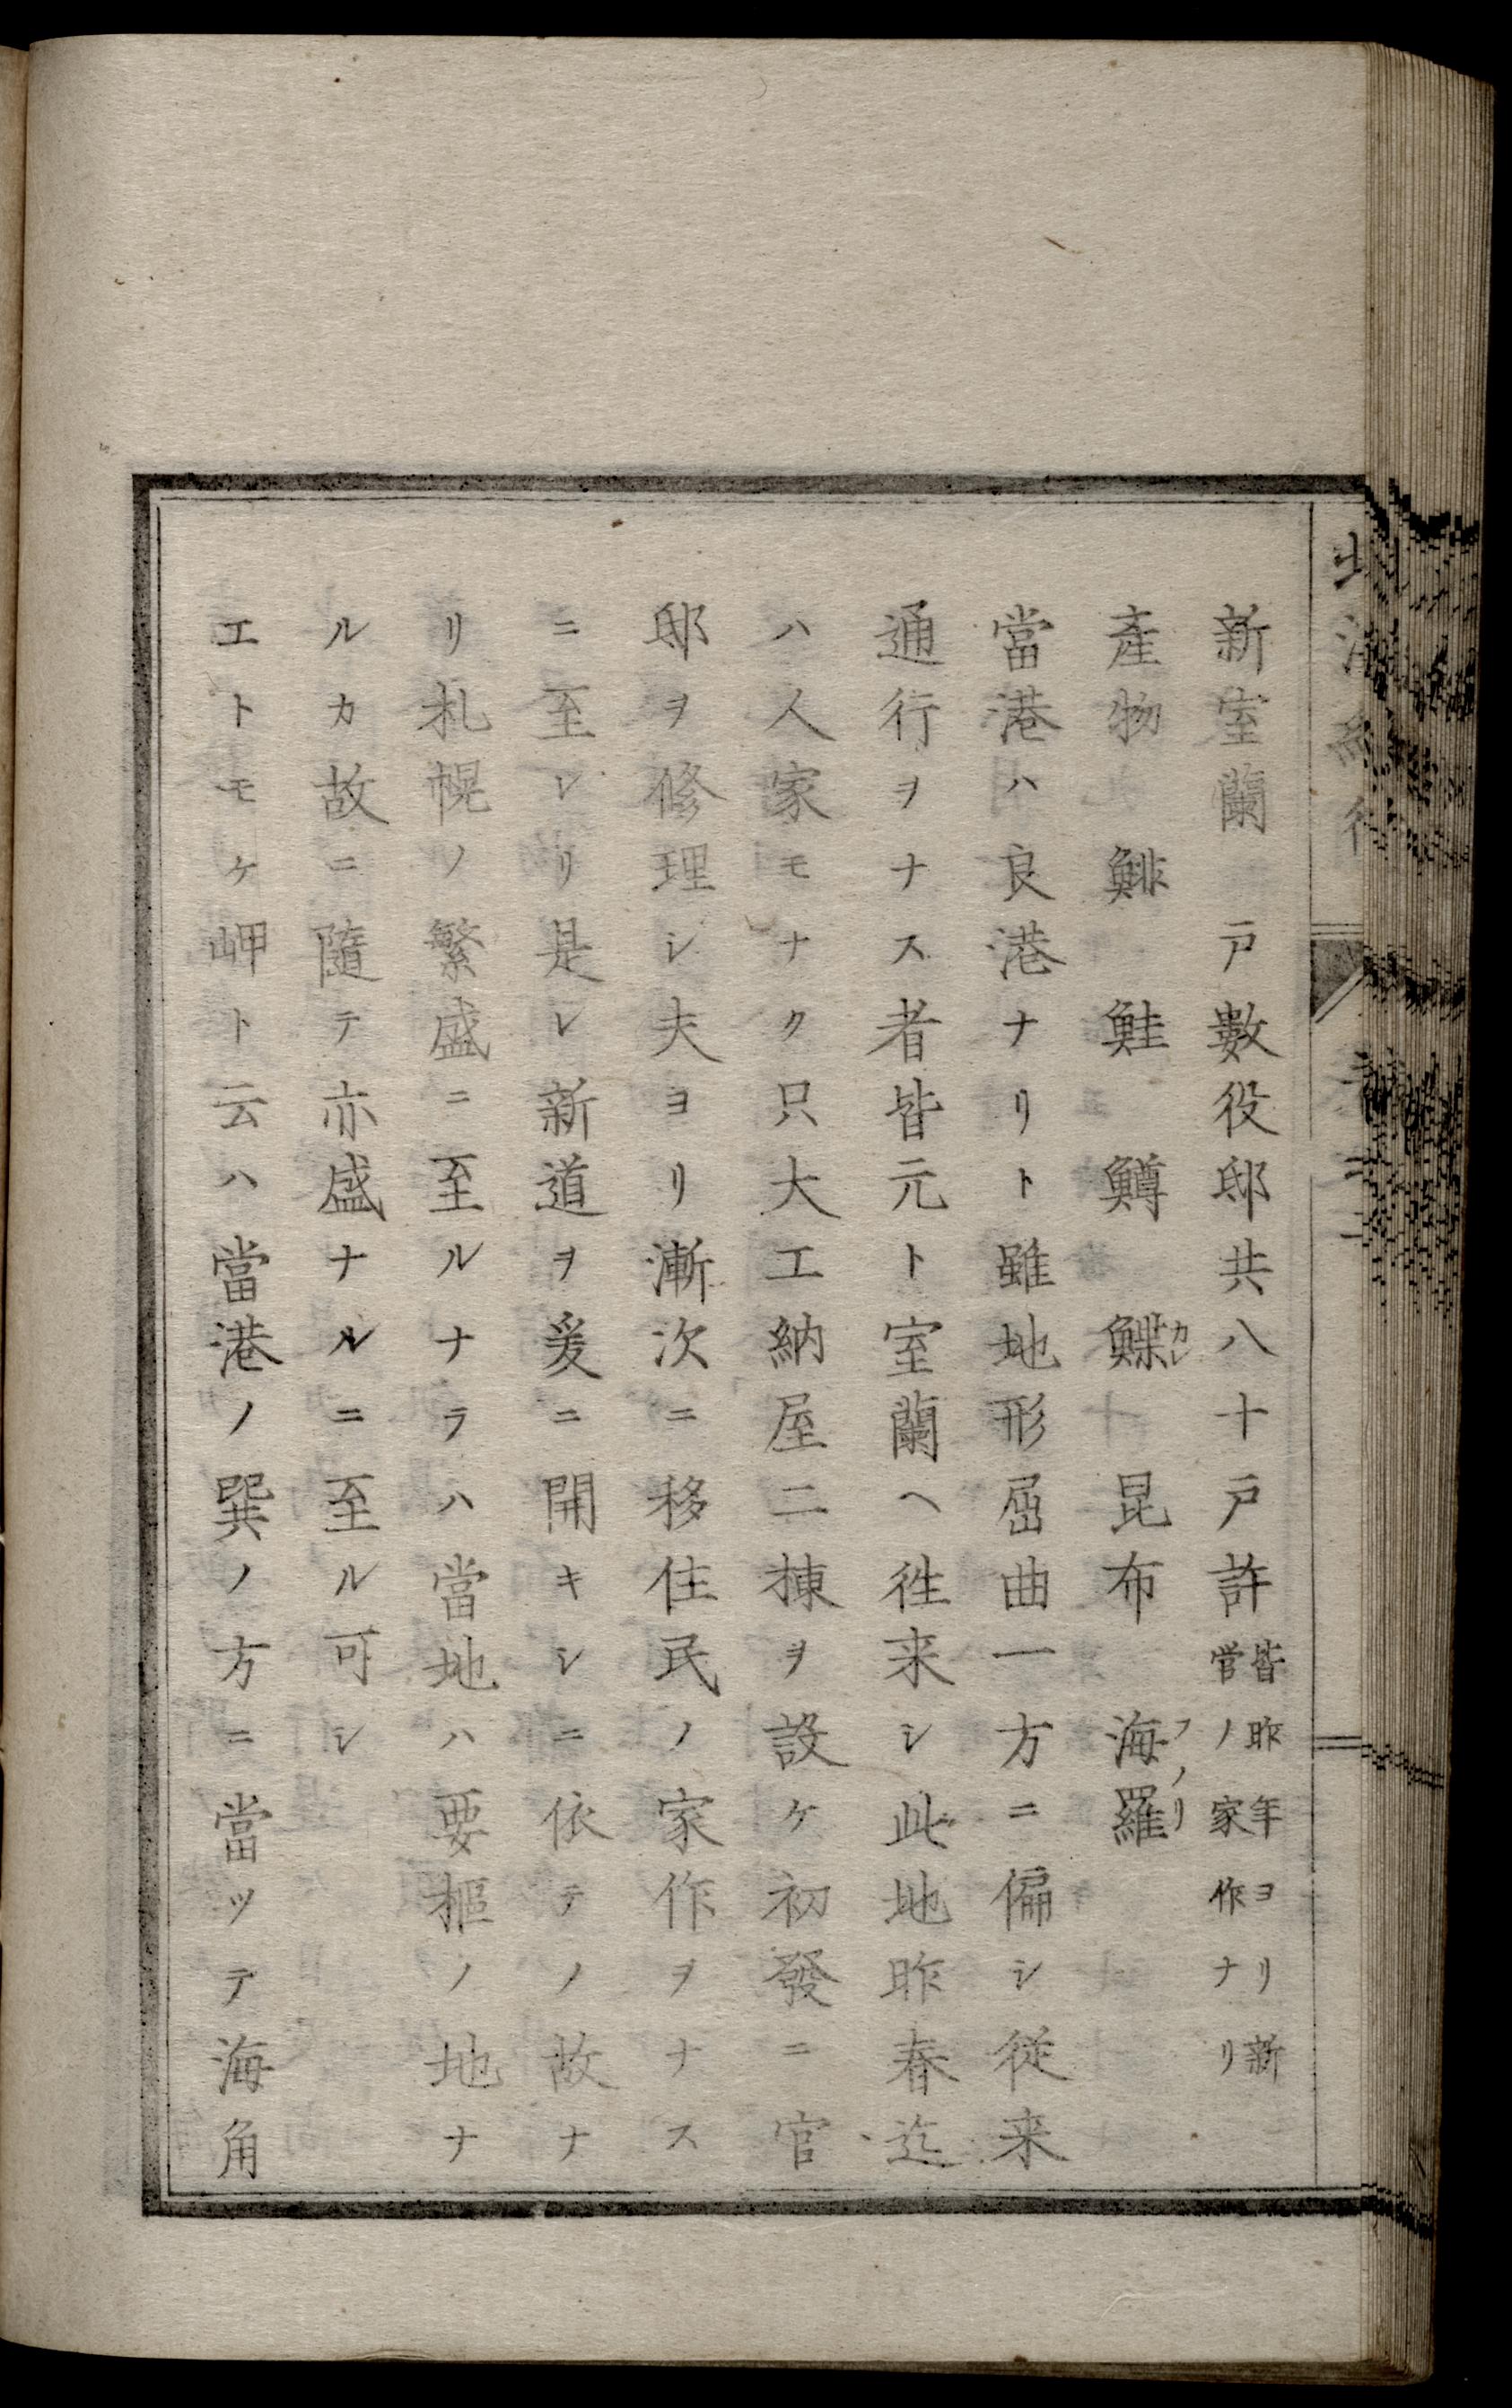 新室蘭　戸數役邸共八十戸許皆昨年ヨリ新営ノ家作ナリ
產物　鯡　鮭　鱒　鰈カレ　昆布　海羅フノリ
當港ハ良港ナリト雖地形屈曲一方ニ偏シ從来
通行ヲナス者皆元ト室蘭ヘ徃来シ此地昨春迄
ハ人家モナク只大工納屋二棟ヲ設ケ初發ニ官
邸ヲ修理シ夫ヨリ漸次ニ移住民ノ家作ヲナス
ニ至レリ是レ新道ヲ爰ニ開キシニ依テノ故ナ
リ札幌ノ繁盛ニ至ルナラハ當地ハ要樞ノ地ナ
ルカ故ニ隨テ亦盛ナルニ至ル可シ
エトモケ岬ト云ハ當港ノ巽ノ方ニ當ツテ海角